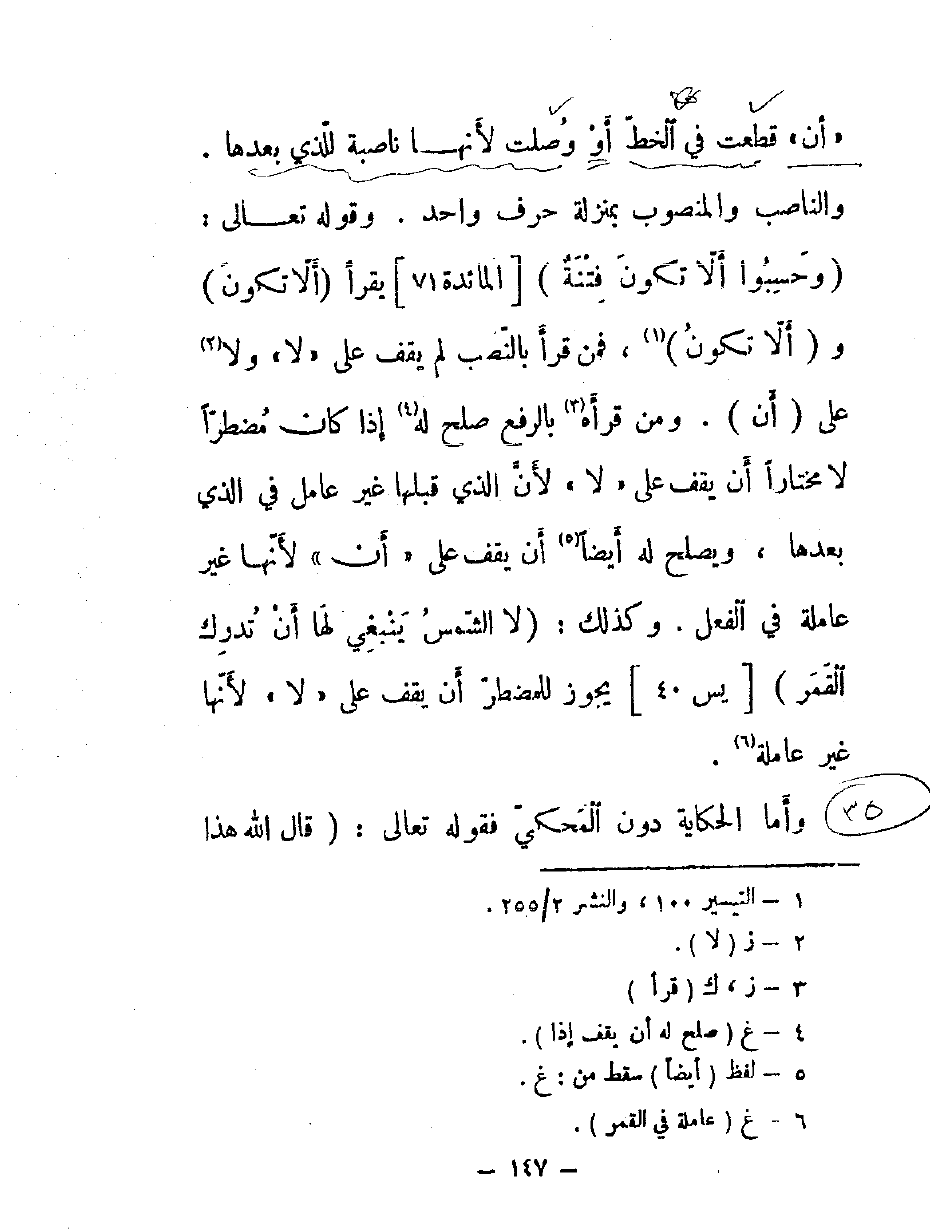 « أن » قطعت في ٱلخطّ أَوْ وُصلت لأَنهـا ناصبة للّذي بعدها .
والناصب والمنصوب بمنزلة حرف واحد . وقوله تعـالى :
( وحَسِبُوا أَلّا تكونَ فِتْنَةٌ ) [ المائدة ٧١ ] يقرأ (أَلّا تكونَ)
و ( أَلّا تكونُ )(١) ، فمن قرأَ بالنّصب لم يقف على « لا » ولا(٢)
على ( أَن ) . ومن قرأَه(٣) بالرفع صلح له(٤) إذا كان مُضطرّاً
لا مختاراً أَن يقف على « لا » لأَنَّ الذي قبلها غير عامل في الذي
بعدها ، ويصلح له أَيضاً(٥) أَن يقف على « أَن » لأَنّهـا غير
عاملة في ٱلفعل . وكذلك : (لا الشّمسُ يَنْبغِي لهَا أَنْ تُدرِك
ٱلقَمَر ) [ يس ٤٠ ] يجوز للمضطرّ أَن يقف على « لا » لأَنّها
غير عاملة(٦) .
٣٥
وأَما الحكاية دون ٱلمَحكيّ فقوله تعالى : ( قال الله هذا
١ – التيسير ١٠٠ ، والنشر ٢/٢٥٥ .
٢ – ز ( لا ) .
٣ – ز ، ك ( قرأ )
٤ – غ ( صلح له أن يقف إذا ) .
٥ – لفظ ( أيضاً ) سقط من : غ .
٦ - غ ( عاملة في القمر ) .
– ١٤٧ –